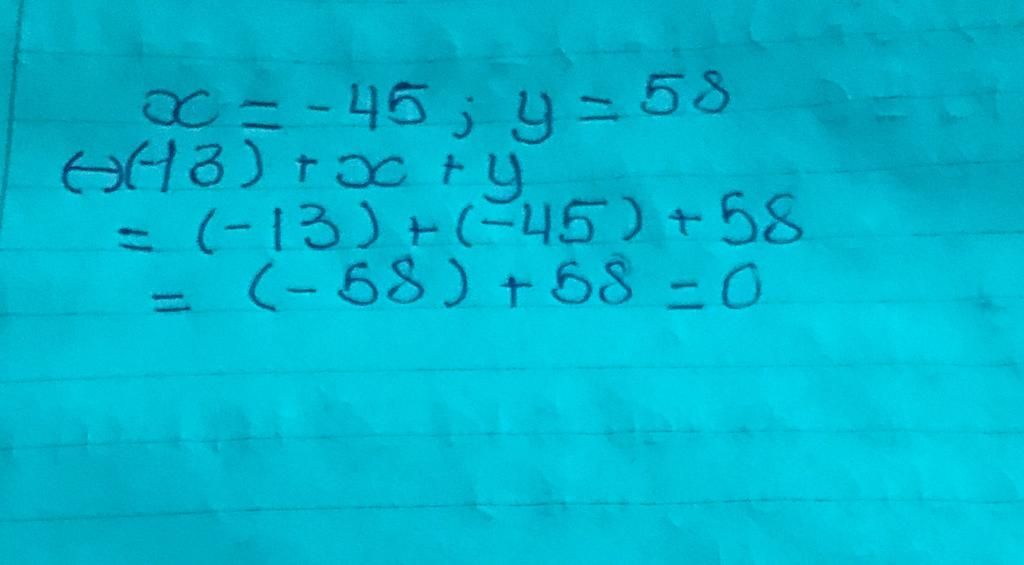 x = -45 ; y = 58
↔(-13) + x + y
= (-13) + (-45) + 58
= (-58) + 58 = 0